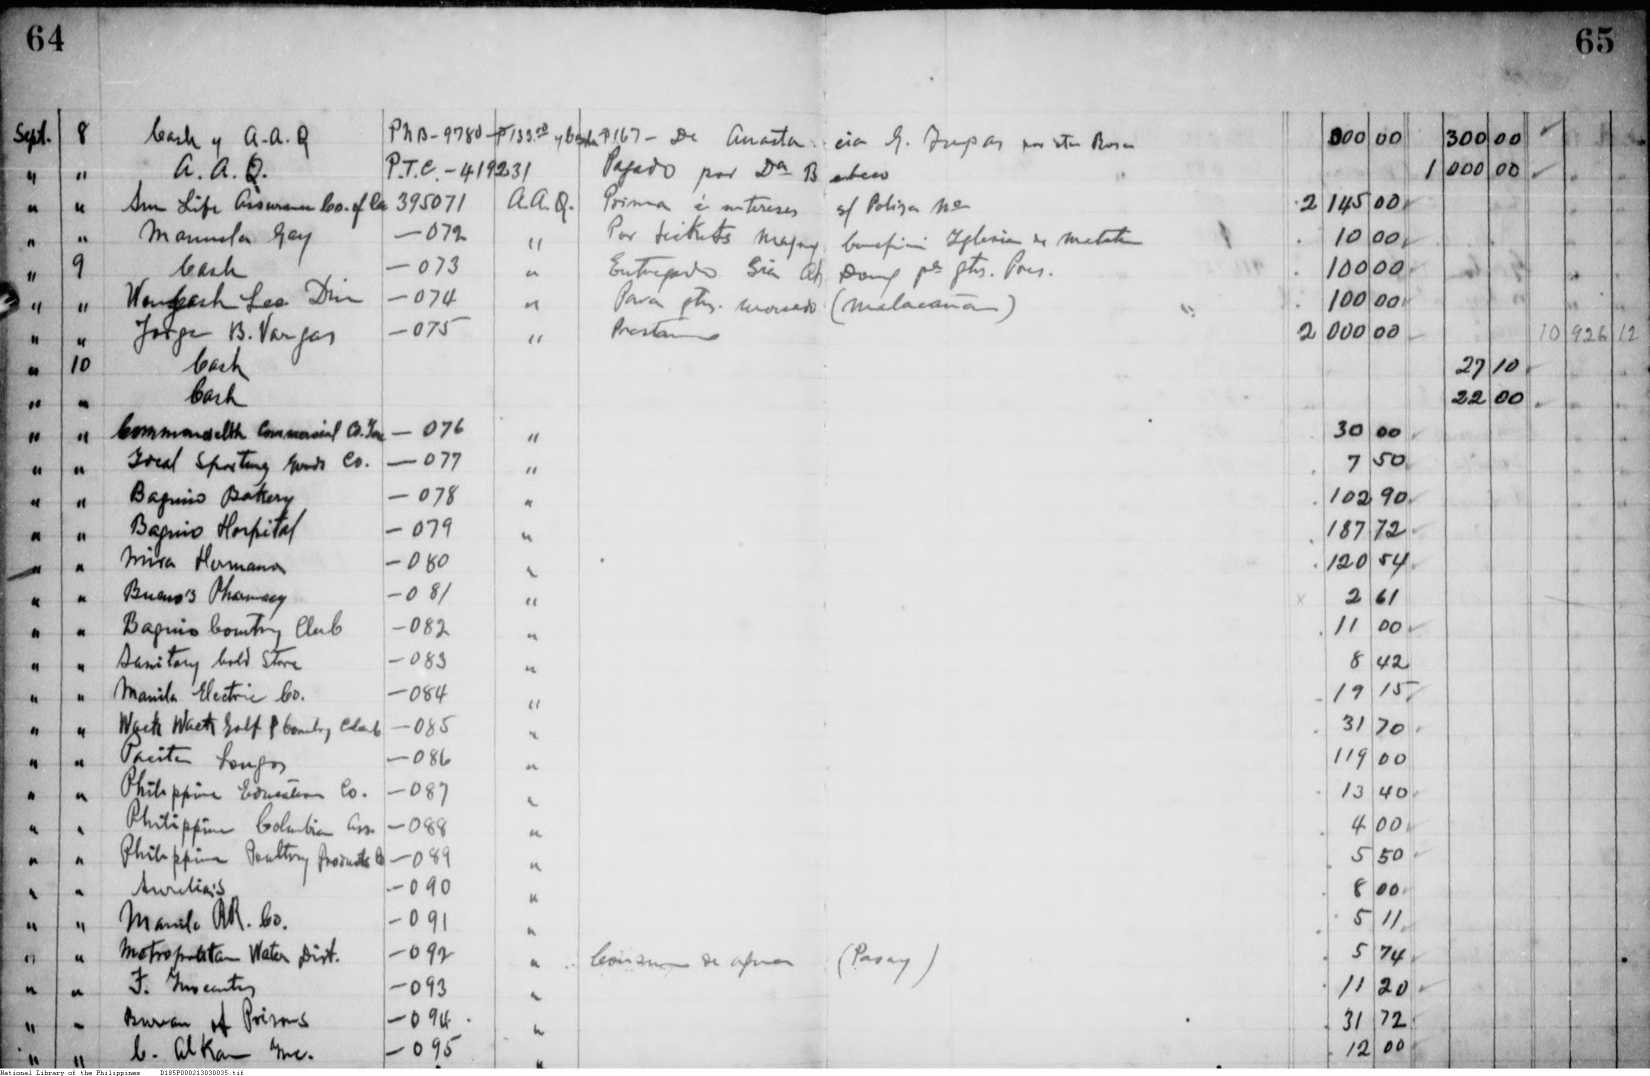 64 65
Sept. 8 Cash y A.A.Q PNB-9780-₱133.00 y Cash ₱167- De Anasta cia G. por Sta Rosa 300 00 300 00
" " A. A. Q. P.T.C.-419231 Pagado por Da B 1 000 00
" " Sun Life Assurance Co. of Ca 395071 A.A.Q. Prima é intereses s/ Poliza No 2 145 00
" " Manuela Gay —072 " Por tickets beneficio Iglesia de 10 00
" 9 Cash —073 " Entregado Sia Ah Dong pa gtos. Pres. 100 00
" " Lee Din —074 " Para gtos. mercado (Malacañan) " 100 00
" " Jorge B. Vargas —075 " Prestamo 2 000 00 10 926 12
" 10 Cash 27 10
" " Cash 22 00
" " Commonwealth Commercial Co. Inc —076 " 30 00
" " Ideal Sporting Goods Co. —077 " 7 50
" " Baguio Bakery —078 " 102 90
" " Baguio Hospital —079 " 187 72
" " Mira Hermanos —080 " 120 54
" " Bueno's Pharmacy —081 " 2 61
" " Baguio Country Club —082 " 11 00
" " Sanitary Cold Store —083 " 8 42
" " Manila Electric Co. —084 " 19 15
" " Wack Wack Golf & Country Club —085 " 31 70
" " Pacita Longos —086 " 119 00
" " Philippine Education Co. —087 " 13 40
" " Philippine Columbian Assn. —088 " 4 00
" " Philippine Poultry Products Co —089 " 5 50
" " Aurelia's —090 " 8 00
" " Manila RR. Co. —091 " 5 11
" " Metropolitan Water Dist. —092 " Consumo de agua (Pasay) 5 74
" " F. —093 " 11 20
" " Bureau of Prisons —094 " 31 72
" " C. Alkan Inc. —095 " 12 00
National Library of the Philippines D185P000213030035.tif